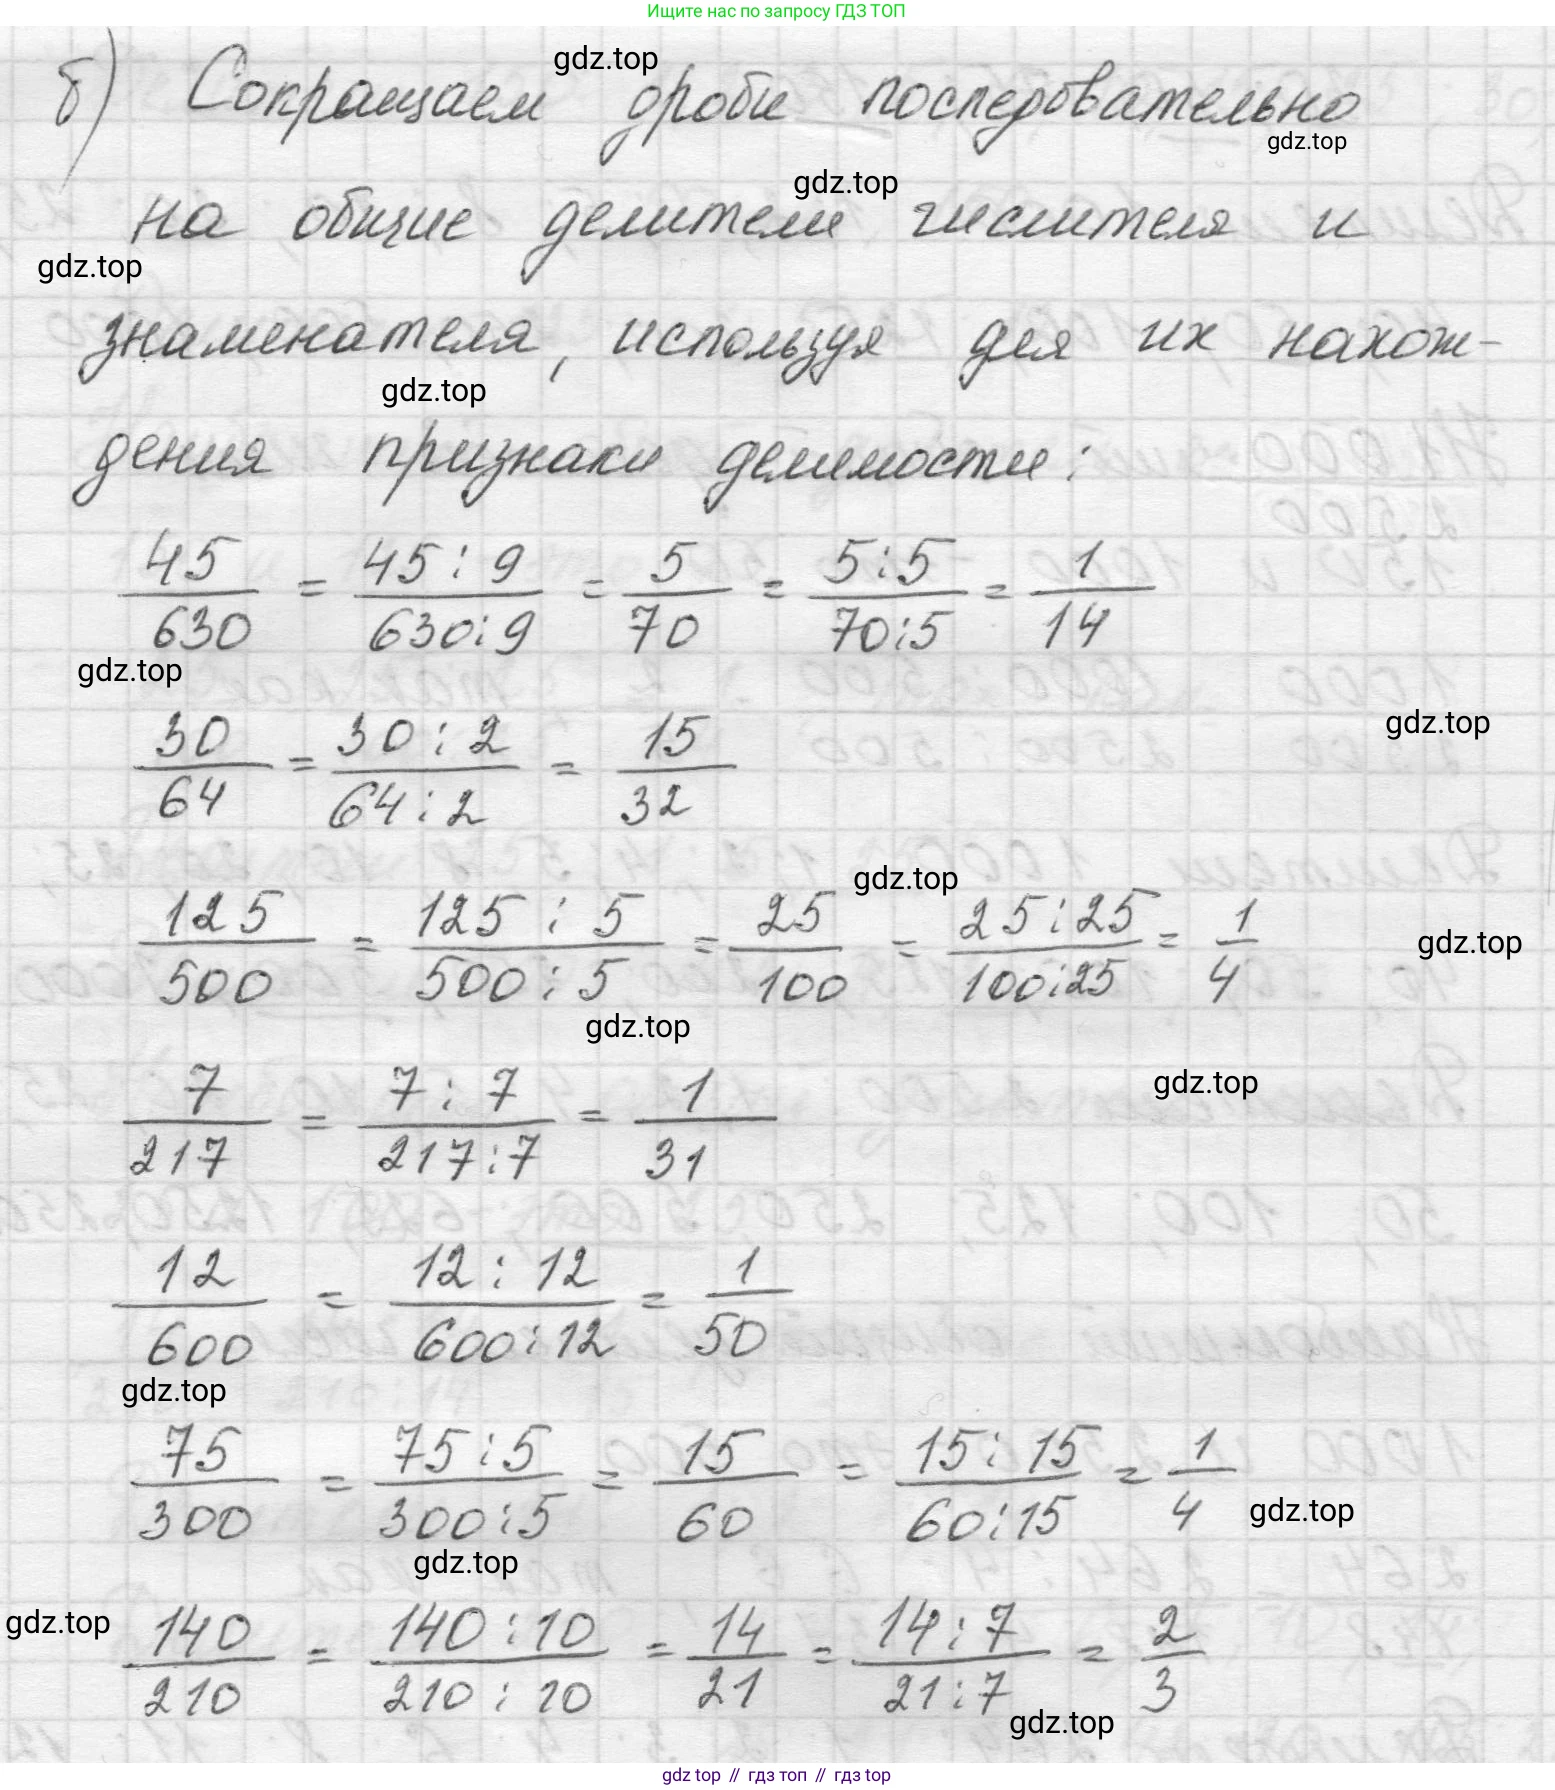 Ищите нас по запросу ГДЗ ТОП
б) Сокращаем дроби последовательно
gdz.top
gdz.top
на общие делители числителя и
gdz.top
gdz.top
знаменателя, используя для их нахож-
gdz.top
дения признаки делимости:
45/630 = 45:9/630:9 = 5/70 = 5:5/70:5 = 1/14
gdz.top
30/64 = 30:2/64:2 = 15/32
gdz.top
gdz.top
125/500 = 125:5/500:5 = 25/100 = 25:25/100:25 = 1/4
gdz.top
gdz.top
7/217 = 7:7/217:7 = 1/31
gdz.top
12/600 = 12:12/600:12 = 1/50
gdz.top
75/300 = 75:5/300:5 = 15/60 = 15:15/60:15 = 1/4
gdz.top
gdz.top
140/210 = 140:10/210:10 = 14/21 = 14:7/21:7 = 2/3
gdz.top
gdz.top
gdz top // гдз топ // гдз top